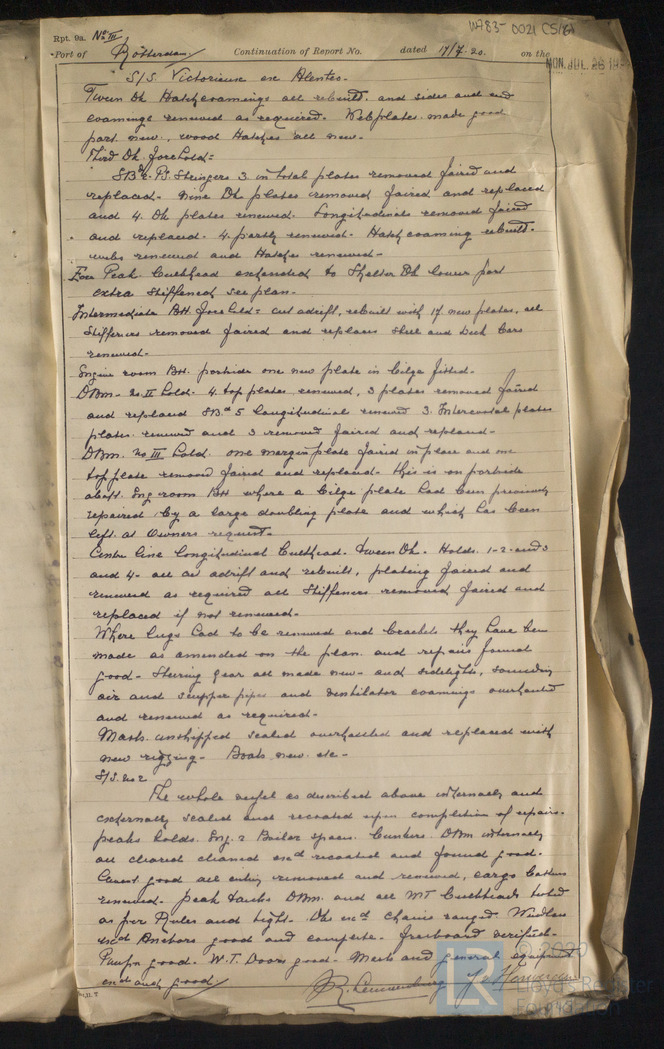 W783-0021 C5/8
Rpt. 9a. No III
Port of Rotterdam Continuation of Report No. dated 17/7.20. on the
MON. JUL. 26 19
S/S. Victorieuse ex Alentes.
Tween Dk Hatchcoamings all rebuilt. and sides and end
coamings renewed as required. Webplates made good
part new, wood Hatches all new.
Third Dk. Forehold=
SBd & PS. Stringers 3 in total plates removed faired and
replaced. Nine Dk plates removed faired and replaced
and 4. Dk plates renewed. Longitudinals removed faired
and replaced. 4 partly renewed. Hatchcoaming rebuilt.
webs renewed and Hatches renewed.
Fore Peak Bulkhead extended to Shelter Dk lower part
extra stiffened see plan.
Intermediate BH. Forehold= cut adrift, rebuilt with 17 new plates, all
stiffeners removed faired and replaced shell and Deck bars
renewed.
Engine room BH. portside one new plate in bilge fitted.
DBm. No. II hold. 4. top plates renewed, 3 plates removed faired
and replaced SBd 5 longitudinal renewed 3. Intercostal plates
plates renewed and 3 removed faired and replaced.
DBm. No III hold. one margin plate faired in place and one
top plate removed faired and replaced. this is on portside
abaft. Eng room BH where a bilge plate had been previously
repaired by a large doubling plate and which has been
left at Owners request.
Centre line longitudinal bulkhead. Tween Dk. Holds. 1-2- and 3
and 4- all cut adrift and rebuilt, plating faired and
renewed as required all Stiffeners removed faired and
replaced if not renewed.
Where lugs had to be renewed and brackets they have been
made as amended on the plan and repairs found
good. Steering gear all made new. and sidelights, sounding
air and scupper pipes and Ventilator coamings overhauled
and renewed as required.
Masts. unshipped scaled overhauled and replaced with
new rigging. Boats new. etc.
S/S. No 2
The whole vessel as described above internally and
externally scaled and recoated upon completion of repairs.
peaks holds. Eng. & Boiler spaces. bunkers. DBm internally
all cleared cleaned exd recoated and found good.
Cement good all removed and renewed, cargo battens
renewed. Peak tanks DBm. and all WT bulkheads tested
as per Rules and tight. Dk exd chains ranged. Windlass
exd Anchors good and complete. freeboard verified.
Pumps good. W.T. Doors good. Masts and general equipment
exd and good
© 2020
Lloyd's Register
Foundation
LR